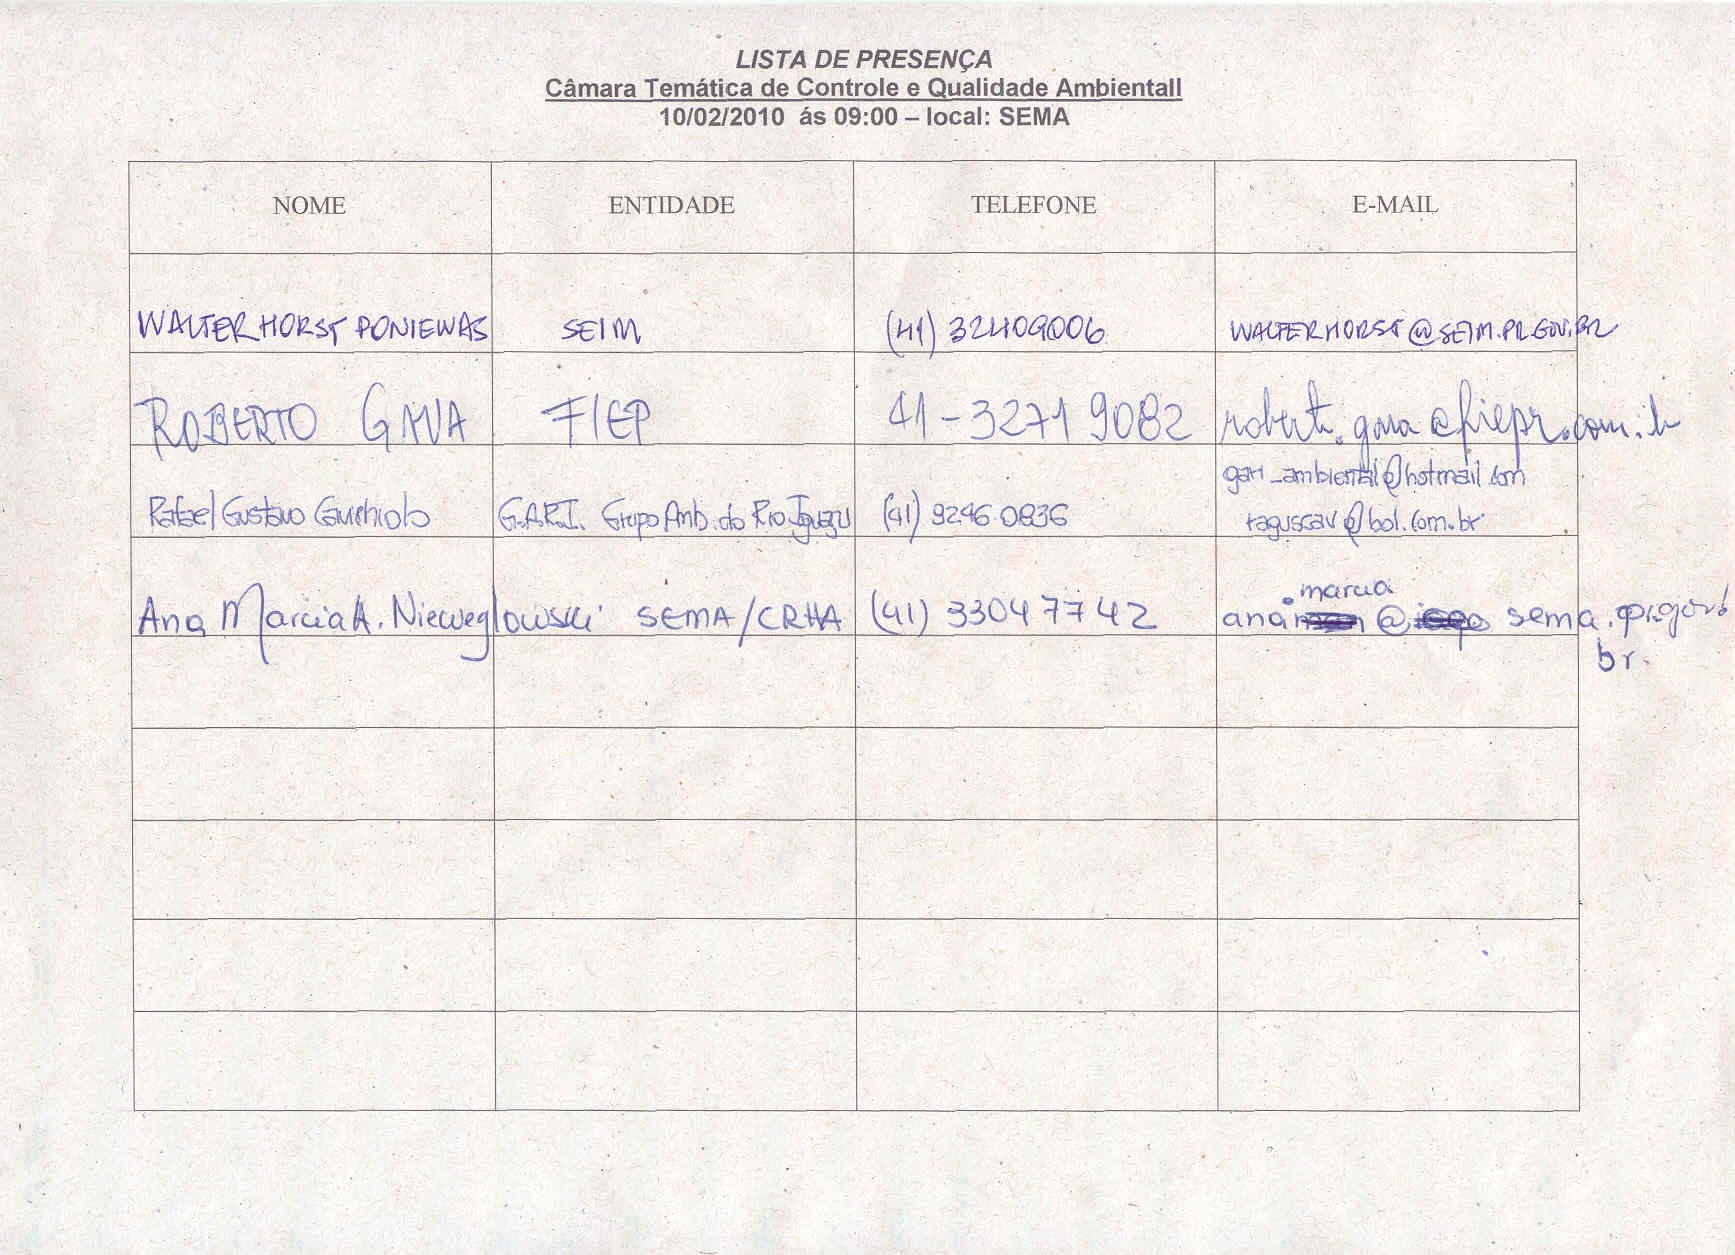 LISTA DE PRESENÇA
Câmara Temática de Controle e Qualidade Ambientall
10/02/2010 ás 09:00 – local: SEMA
NOME ENTIDADE TELEFONE E-MAIL
WALTER HORST PONIEWAS SEIM (41) 32409006 WALTERHORST@SEIM.PR.GOV.BR
ROBERTO GAVA FIEP 41-32719082 roberto.gava@fiepr.com.br
gari_ambiental@hotmail.com
Rafael Gustavo G.A.R.I. Grupo Amb. do Rio Iguaçu (41) 9246.0836 raguscav@bol.com.br
.marcia
Ana Marcia A. Nieweglowski SEMA/CRHA (41) 33047742 ana @ sema.pr.gov.
br.